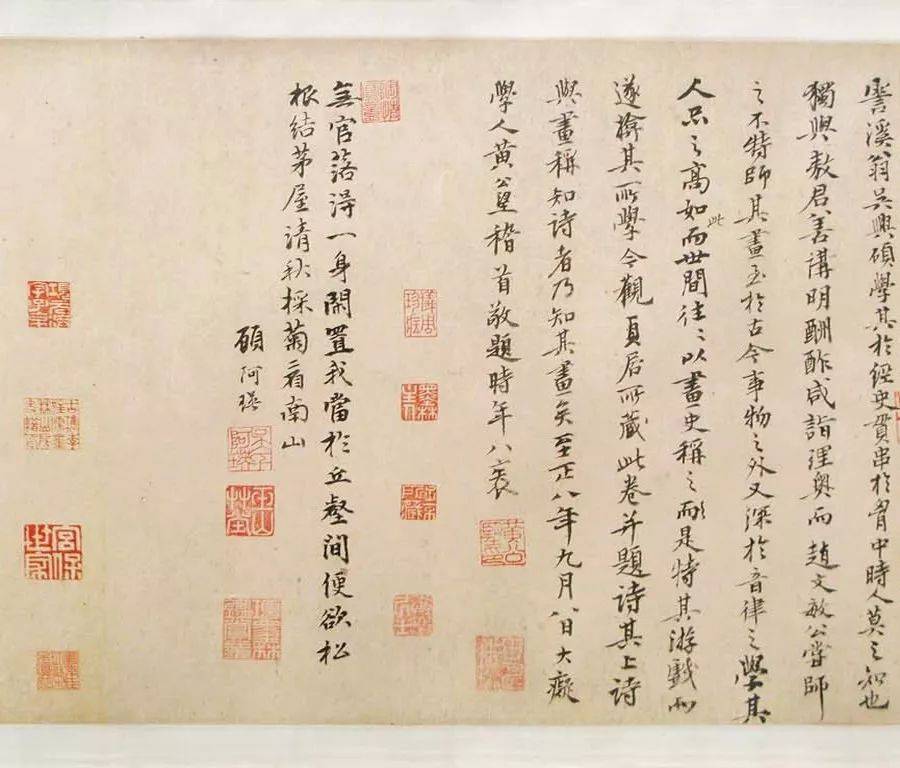 霅溪翁吳興碩學其於經史貫串於胷中時人莫之知也
獨與敖君善講明酬酢咸詣理奧而趙文敏公嘗師
之不特師其畫至於古今事物之外又深於音律之學其
人品之高如此而世間往〻以畫史稱之是特其游戲而
遂揜其所學今觀貞居所藏此卷并題詩其上詩
與畫稱知詩者乃知其畫矣至正八年九月八日大癡
學人黃公望稽首敬題時年八袠
無官落得一身閒置我當於丘壑間便欲松
根結茅屋清秋採菊看南山
顧阿瑛
項墨林鑑賞章
宮保世家